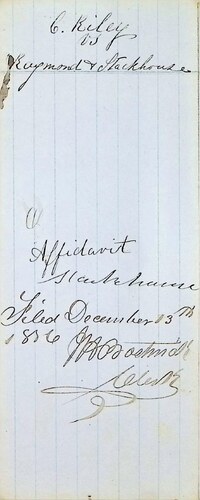 C. Riley
vs
Raymond & Stackhouse
Affidavit
Stackhouse
Filed December 13th
1856 J H Bostwick
Clerk